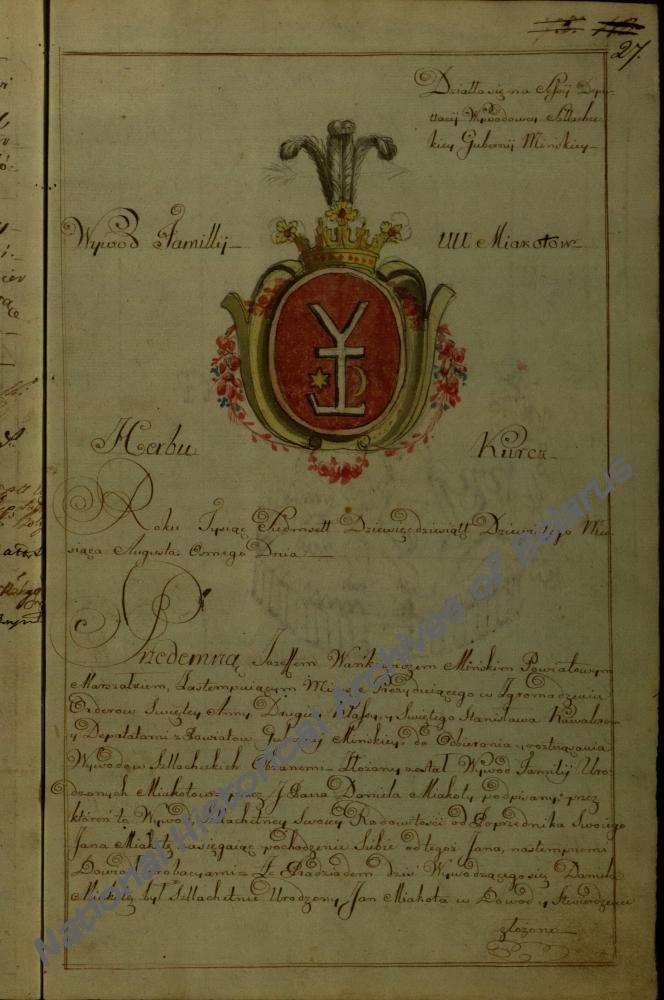 27.
Działło się na Sessyi Depu-
tacyi Wywodowey Szlachec-
kiey Gubernij Mińskiey
Wywod Familly
UU Miakotow
Herbu
Kurcz
Roku Tysiąc Siedmsett Dziewięćdziesiątt Dziewiątego Mie-
siąca Augusta Osmego Dnia
Przedemną Jozeffem Wańkowiczem Mińskim Powiatowym
Marszałkiem, Zastempuiącym Prezyduiącego w Zgromadzeniu
Orderow Swiętey Anny Drugiey Klassy, y Swiętego Stanisława Kawalerem
y Deputatami z Powiatow Gubernij Mińskiey do Odbierania, y roztrząsania
Wywodow Szlacheckich Obranemi Złożony został Wywod Familij Uro-
dzonych Miakotow przez JPana Daniela Miakotę podpisany, przez
ktoren to Wywod Szlachetney Swoiey Rodowitości od Poprzednika Swoiego
Jana Miakoty zasięgaiąc pochodzenie Siebie od tegoż Jana, następnemi
Dowodzi probacyami = Że Pradziadem dziś Wywodzącego się Daniela
Miakoty był Szlachetnie Urodzony Jan Miakota w Dowod y Stwierdzenie
złożone
National Historical Archives of Belarus